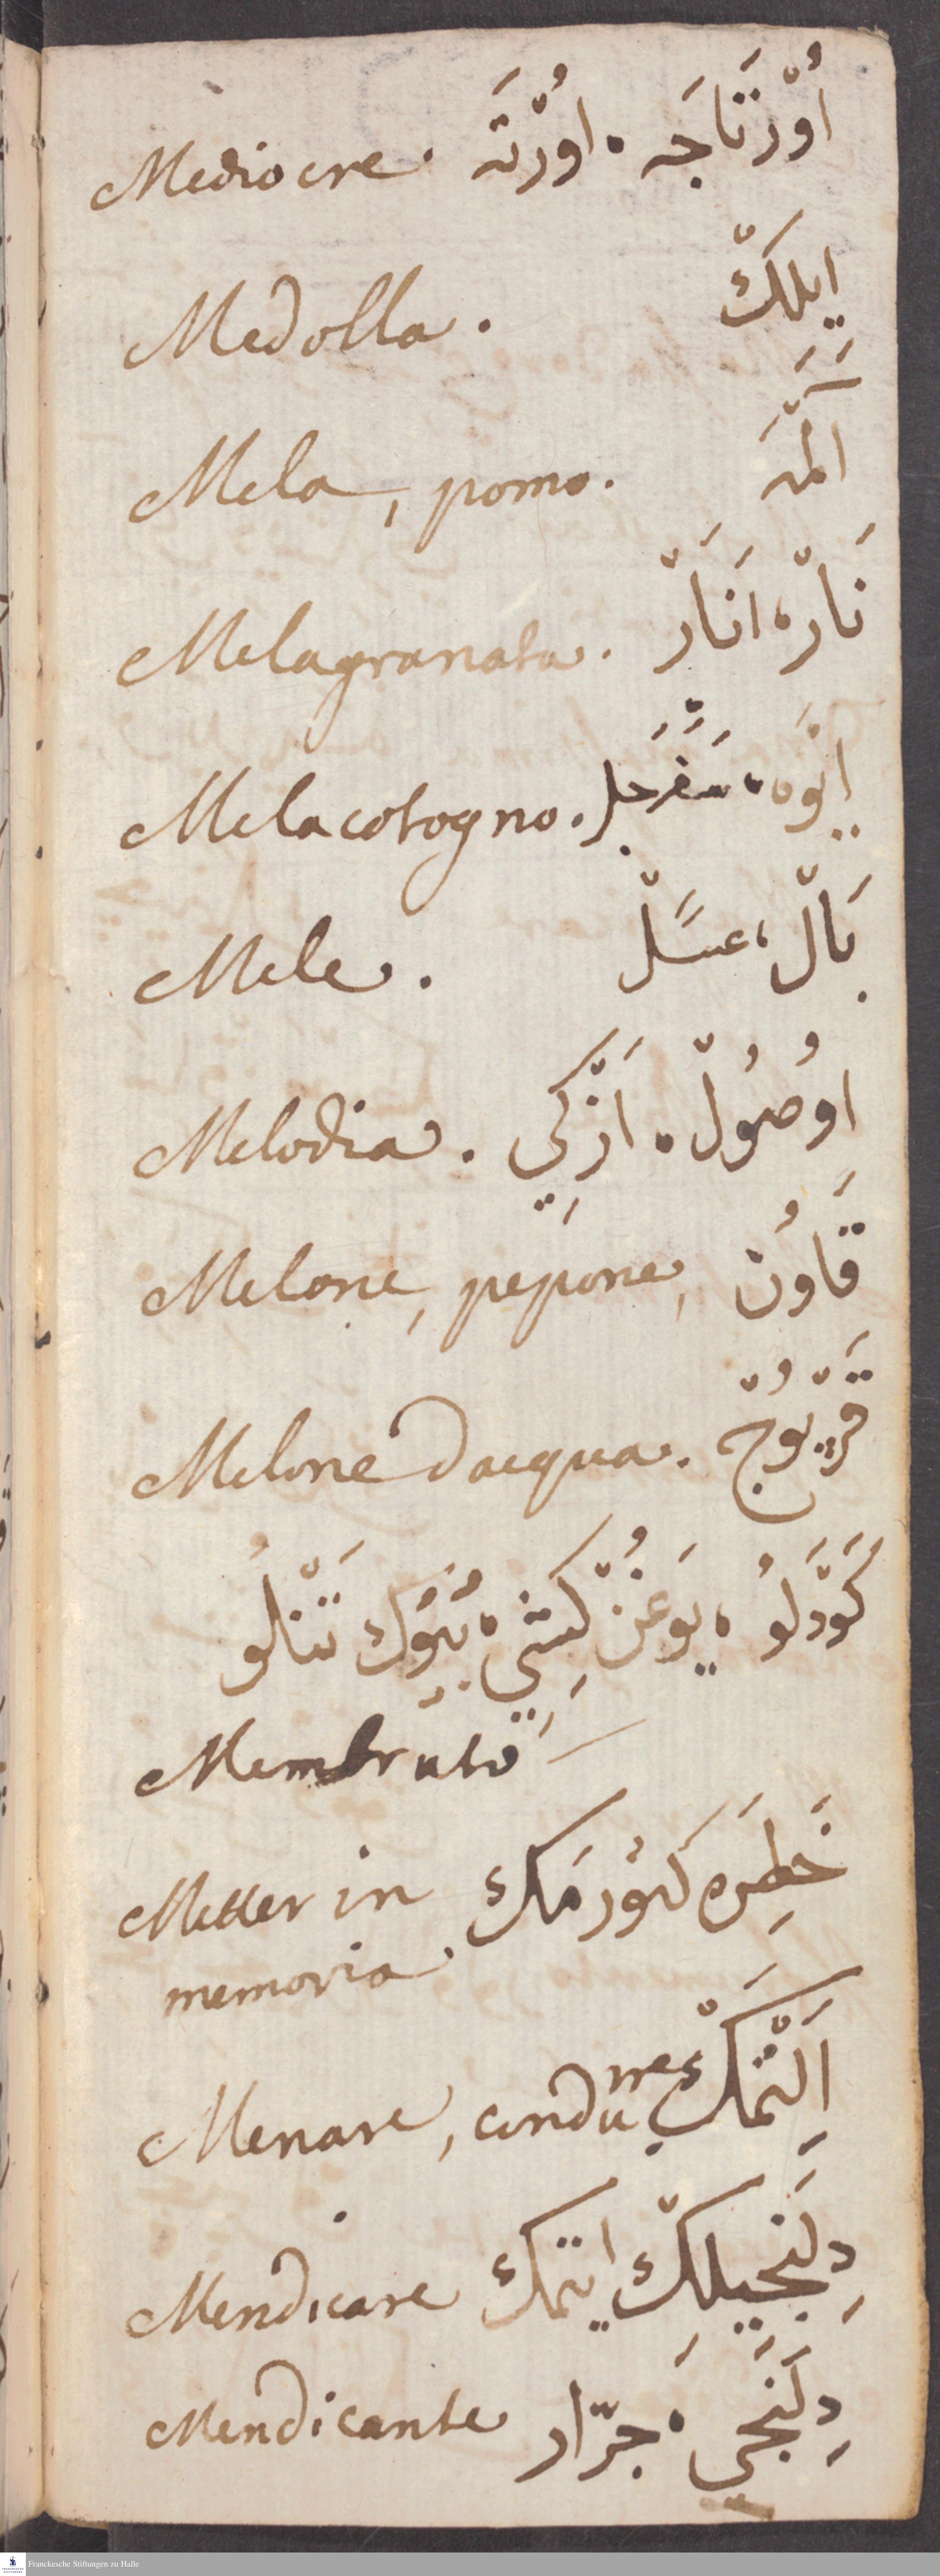 Mediocre. اُوْرْتَاجَه ، اوُرْتَه
Medolla. اِيلِكْ
Mela, pomo. اَلْمَه
Melagranata. نَارْ ، اَنَارْ
Melacotogno. اَيْوَه ، سَفَرْجَلْ
Mele. بَالْ ، عَسَلْ
Melodia. اوُصُولْ ، اَزْكِي
Melone, pepone, قَاوُن
Melone dacqua. قَرْپُوجْ
كَوْدَلُو ، يَوغُنْ كِشِي ، بُيوُك تَنْلُو
Membruto
Metter in خَطِرَه كَتوُرمَك
memoria.
Menare, condurre. اِلَتْمَكْ
Mendicare دِلَنْجِيلِكْ ايتمك
Mendicante دِلَنْجِي ، جرّار
Franckesche Stiftungen zu Halle